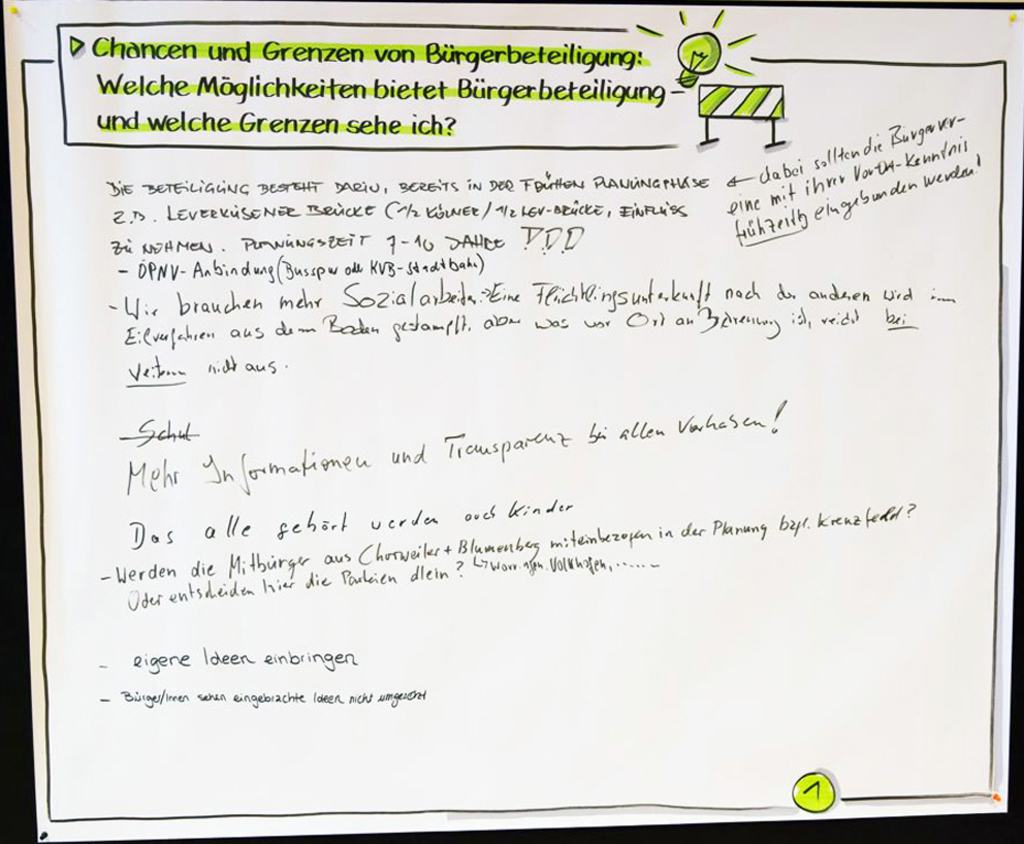 Chancen und Grenzen von Bürgerbeteiligung:
Welche Möglichkeiten bietet Bürgerbeteiligung –
und welche Grenzen sehe ich?
DIE BETEILIGUNG BESTEHT DARIN, BEREITS IN DER FRÜHEN PLANUNGPHASE
Z.B. LEVERKUSENER BRÜCKE (1/2 KÖLNER / 1/2 LEV-BRÜCKE, EINFLUSS
ZU NEHMEN. PLANUNGSZEIT 7-10 JAHRE !!!
← dabei sollten die Bürgerver-
eine mit ihrer Vor-Ort-Kenntnis
frühzeitig eingebunden werden!
- ÖPNV-Anbindung (Busspur oder KVB-Stadtbahn)
- Wir brauchen mehr Sozialarbeiter → Eine Flüchtlingsunterkunft nach der anderen wird im
Eilverfahren aus dem Boden gestampft, aber was vor Ort an Betreuung ist, reicht bei
Weitem nicht aus.
Schul
Mehr Informationen und Transparenz bei allen Vorhaben!
Das alle gehört werden auch Kinder
- Werden die Mitbürger aus Chorweiler + Blumenberg miteinbezogen in der Planung bzgl. Kreuzfeld?
↳ Worringen, Volkhofen, ......
Oder entscheiden hier die Parteien allein?
- eigene Ideen einbringen
- Bürger/innen sehen eingebrachte Ideen nicht umgesetzt
1